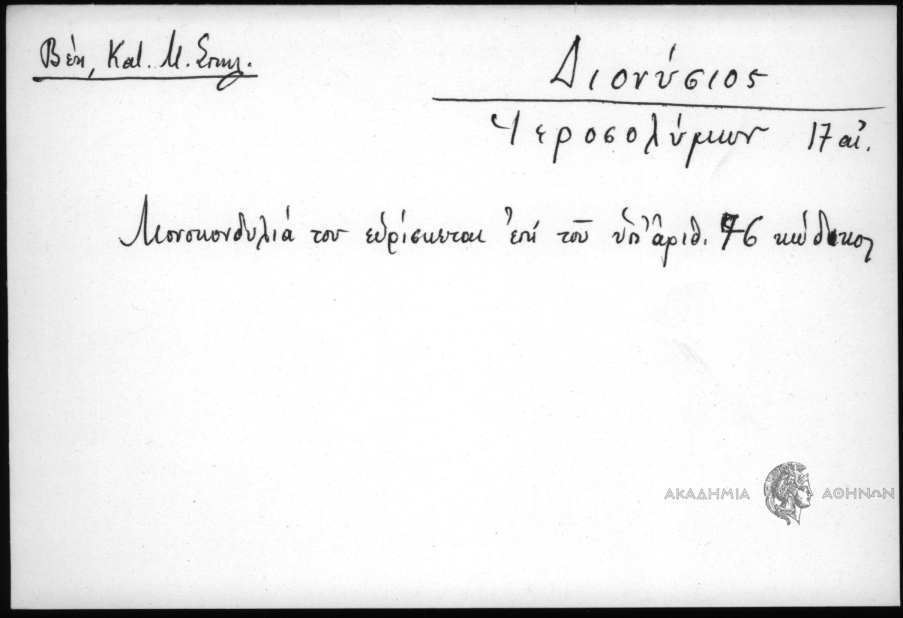 Βέη, Κατ. Μ. Σπηλ.
Διονύσιος
Ἱεροσολύμων 17 αἰ.
Μονοκονδυλιά του εὑρίσκεται ἐπί τοῦ ὑπ' ἀριθ. 76 κώδικος
ΑΚΑΔΗΜΙΑ ΑΘΗΝΩΝ